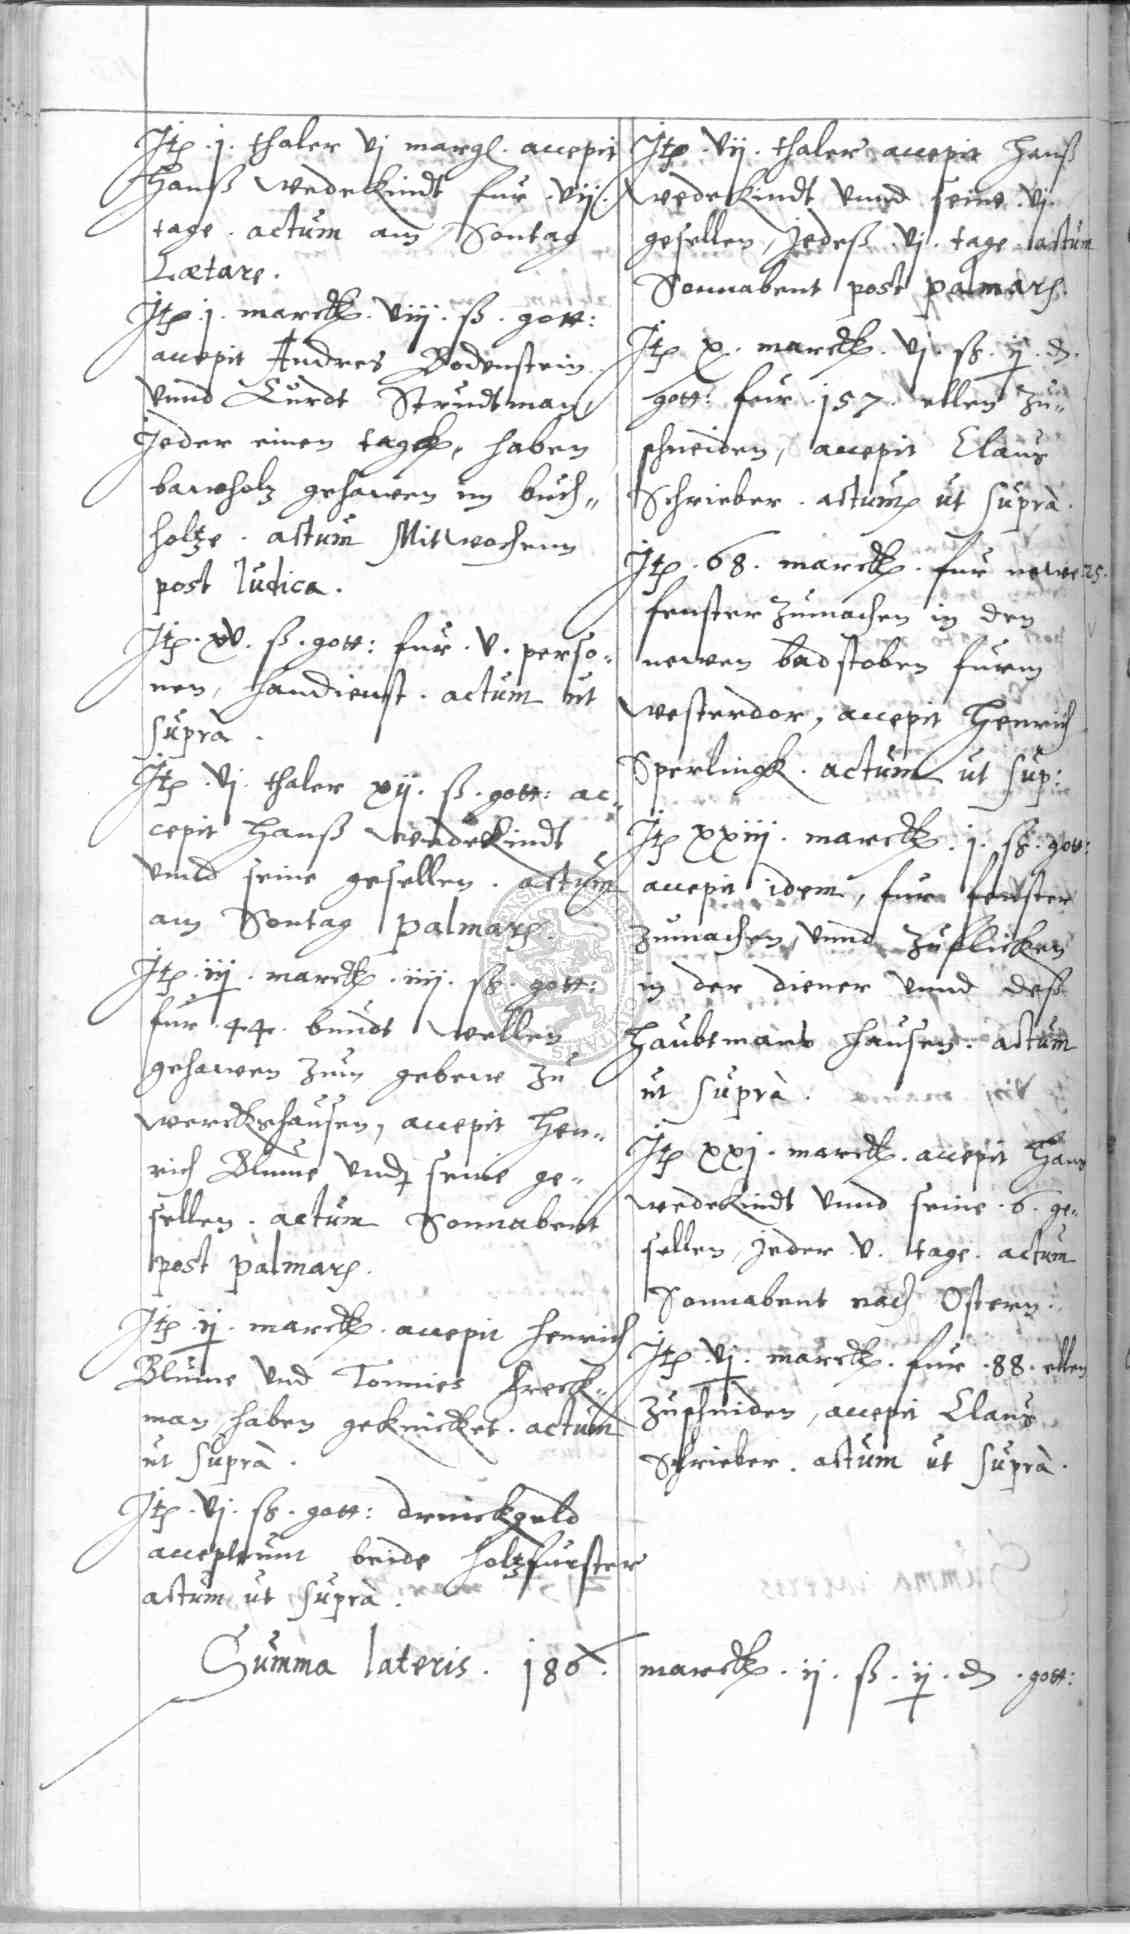 Jtem .j. thaler vj margl. accepit
Hanß Wedekindt fur .vij.
tage . actum am Sontag
Lætare.
Jtem .j. marck. viij. ß. gott:
accepit Andres Bodenstein
vnnd Curdt Strudtman,
Jeder einen tagk, haben
bawholz gehawen im buch-
holtze . actum Mitwochenn
post Iudica.
Jtem . xv. ß. gott: fur .v. perso-
nen, handienst . actum ut
suprà.
Jtem .vj. thaler xij. ß. gott: ac-
cepit Hanß Wedekindt
vnnd seine gesellen . actum
am Sontag palmarum.
Jtem .iij. marck .iiij. ß. gott:
fur .44. bundt wellen
gehawen zum gebew zu
Werckshausen, accepit Hen-
rich Blume vnd seine ge-
sellen . actum Sonnabent
post palmarum.
Jtem .ij. marck. accepit Henrich
Blume vnd Tonnies Freck-
man haben geknicket . actum
ut suprà.
Jtem .vj. ß. gott: drinckgeld
acceperunt beide holtzfurster
actum ut suprà.
Jtem .vij. thaler accepit Hanß
Wedekindt vnnd seine .vj.
gesellen, Jedeß .vj. tage actum
Sonnabent post palmarum.
Jtem x. marck. vj. ß. ij. d.
gott: fur .157. ellen zu-
schneiden, accepit Claus
Schrieber . actum ut suprà.
Jtem .68. marck. fur newe .25.
fenster zumachen in den
newen badstoben furm
Westerdor, accepit Henrich
Sperlingk . actum ut sup:
Jtem xxiij . marck. j. ß. gott:
accepit idem, fur fenster
zumachen, vnnd zuflicken
in der diener vnnd deß
Haubtmans hausen. actum
ut suprà.
Jtem xxj. marck. accepit Hans
Wedekindt vnnd seine .6. ge-
sellen, Jeder .v. tage. actum
Sonnabent nach Ostern.
Jtem .vj. marck. fur .88. ellen
zuschniden, accepit Claus
Schrieber . actum ut suprà.
Summa lateris . 186. marck .ij. ß. ij. d. gott: